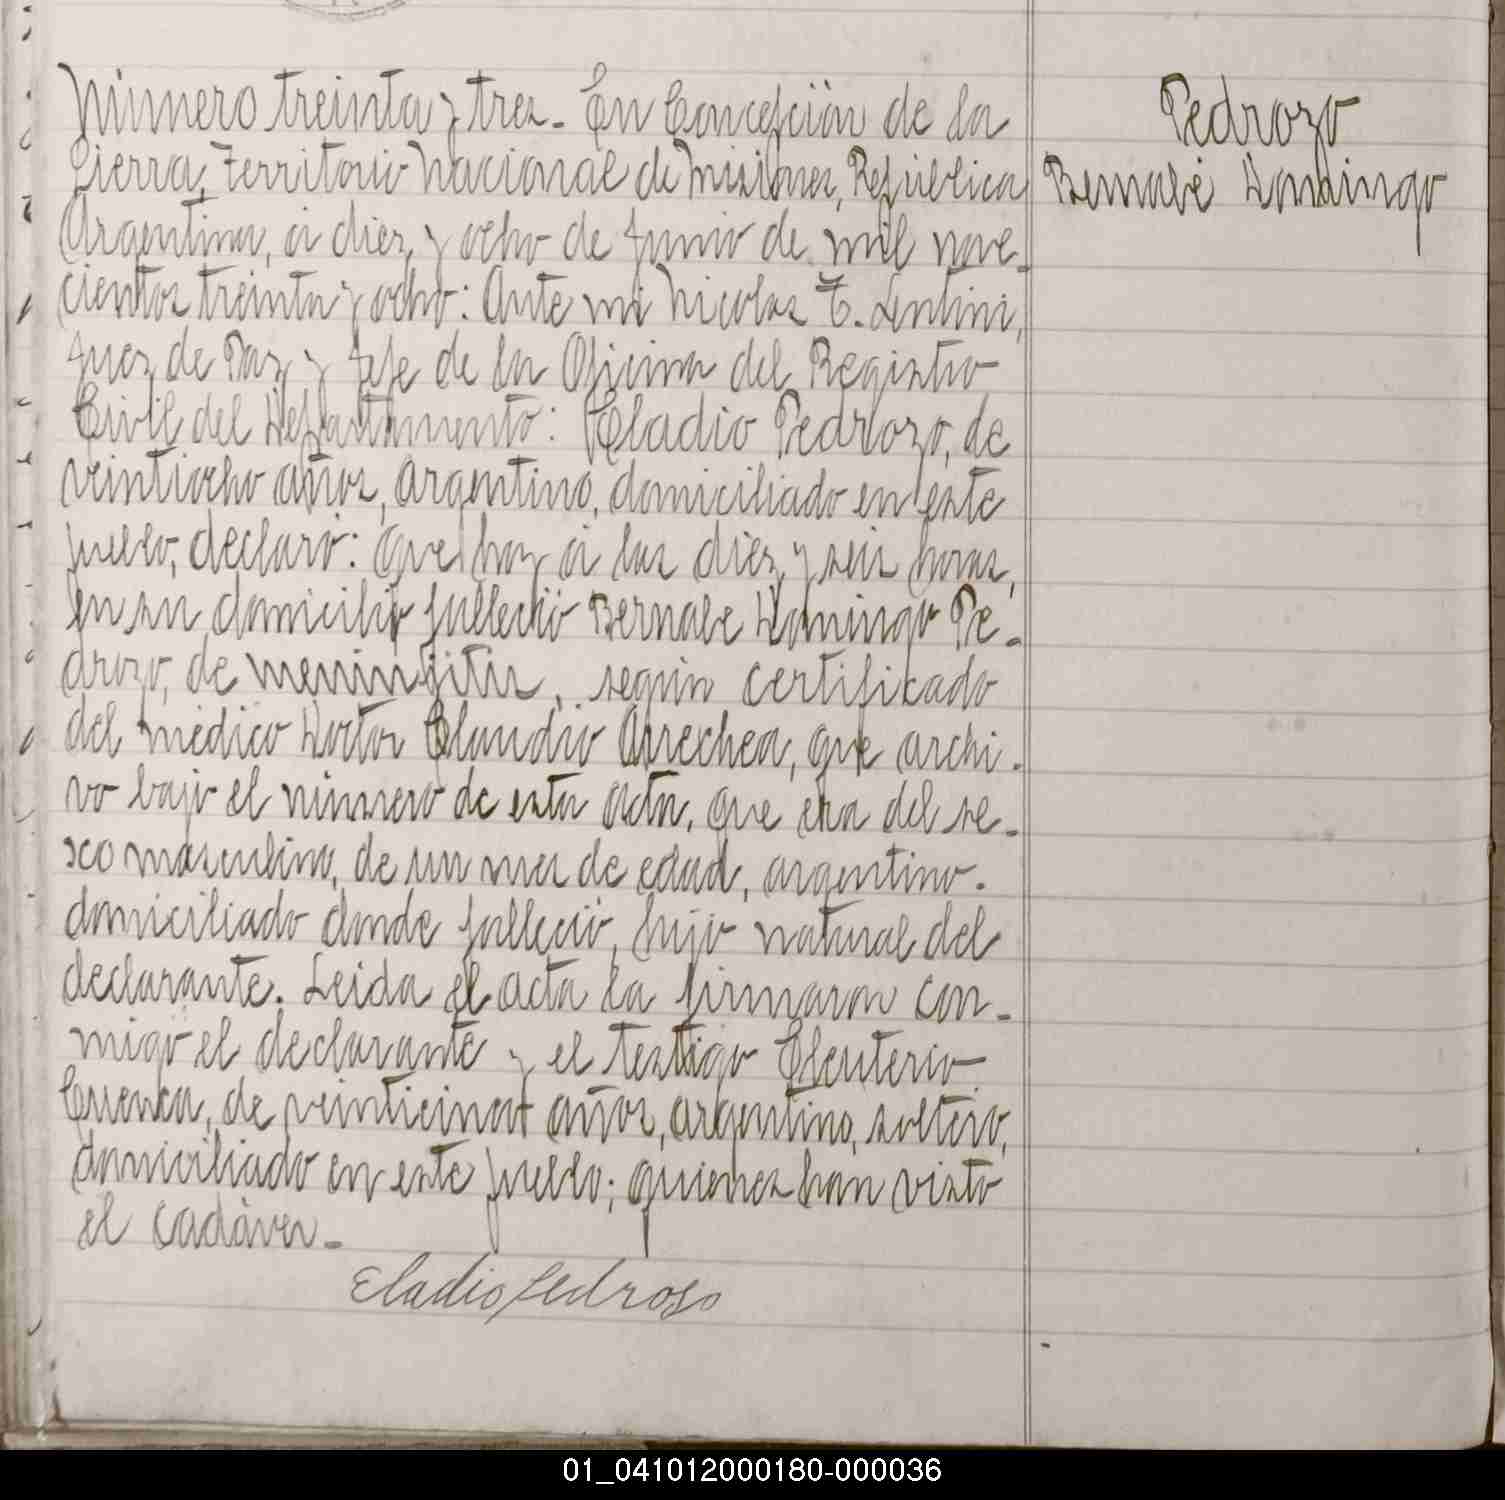 Número treinta y tres.- En Concepción de la
Sierra, Territorio Nacional de Misiones, República
Argentina, á diez y ocho de Junio de mil nove-
cientos treinta y ocho: Ante mi Nicolas T. Lentini,
Juez de Paz y Jefe de la Oficina del Registro
Civil del Departamento: Eladio Pedrozo, de
veintiocho años, argentino, domiciliado en este
pueblo, declaró: Que hoy á las diez y seis horas,
en su domicilio falleció Bernabe Domingo Pe-
drozo, de meningitis, según certificado
del médico Doctor Claudio Arrechea, que archi-
vo bajo el número de esta acta, que era del se-
xo masculino, de un mes de edad, argentino.
domiciliado donde falleció, hijo natural del
declarante. Leida el acta la firmaron con-
migo el declarante y el testigo Eleuterio
Cuenca, de veinticinco años, argentino, soltero,
domiciliado en este pueblo; quienes han visto
el cadáver.-
Eladio Pedroso
Pedrozo
Bernabé Domingo
01_041012000180-000036